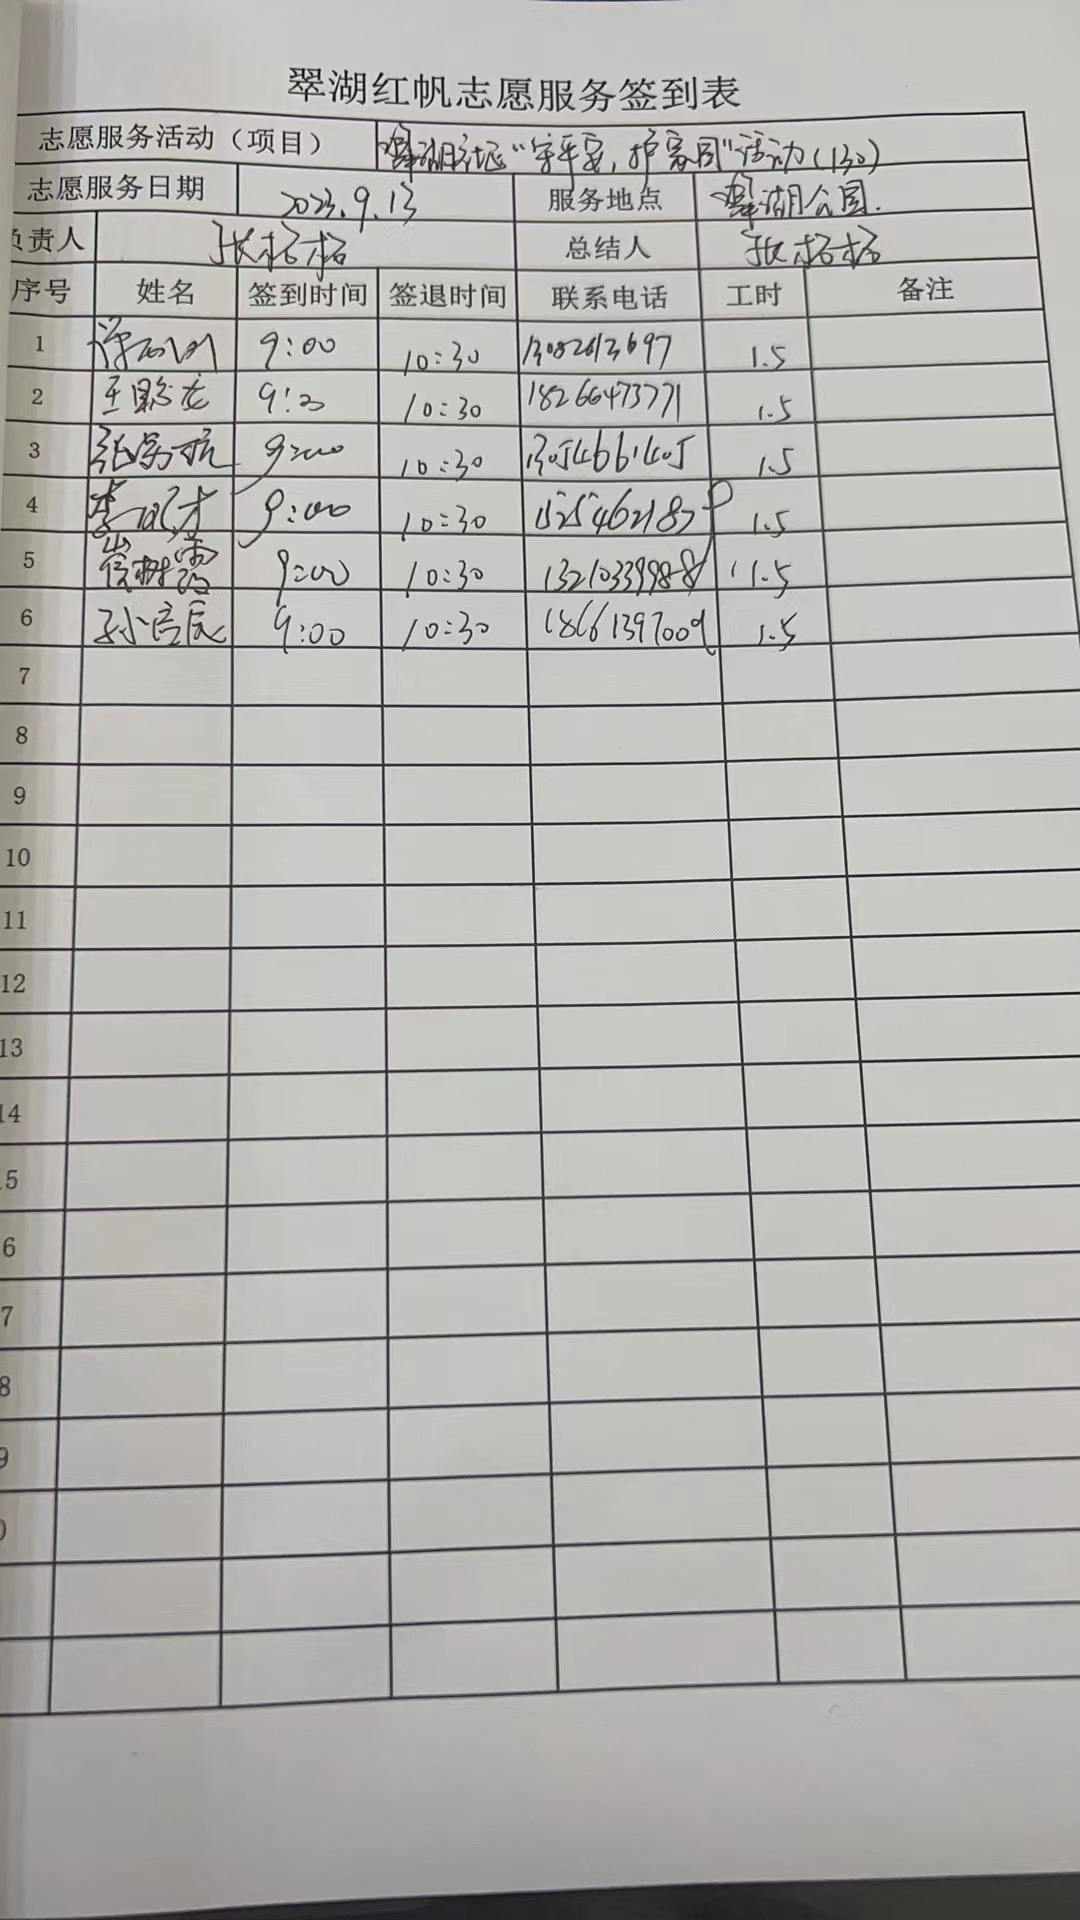 翠湖红帆志愿服务签到表
志愿服务活动（项目） 翠湖社区“守平安，护家园”活动（130）
志愿服务日期 2023.9.13 服务地点 翠湖公园.
负责人 张格格 总结人 张格格
序号 姓名 签到时间 签退时间 联系电话 工时 备注
1 9:00 10:30 13082613697 1.5
2 9:00 10:30 18266473771 1.5
3 9:00 10:30 1.5
4 9:00 10:30 1.5
5 崔树霞 9:00 10:30 13210339988 1.5
6 孙宫辰 9:00 10:30 18661397009 1.5
7
8
9
10
11
12
13
14
15
6
7
8
9
0